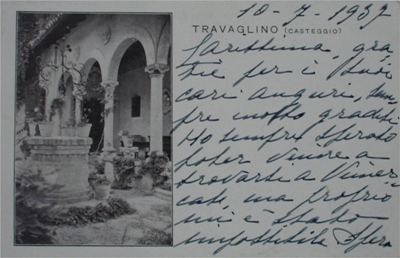 10-7-1937
TRAVAGLINO (CASTEGGIO)
Carissima, gra-
tie per i tuoi
cari auguri, sem-
pre molto graditi
Ho sempre sperato
poter venire a
trovarti a
ma proprio
mi è stato
impossibile Spero